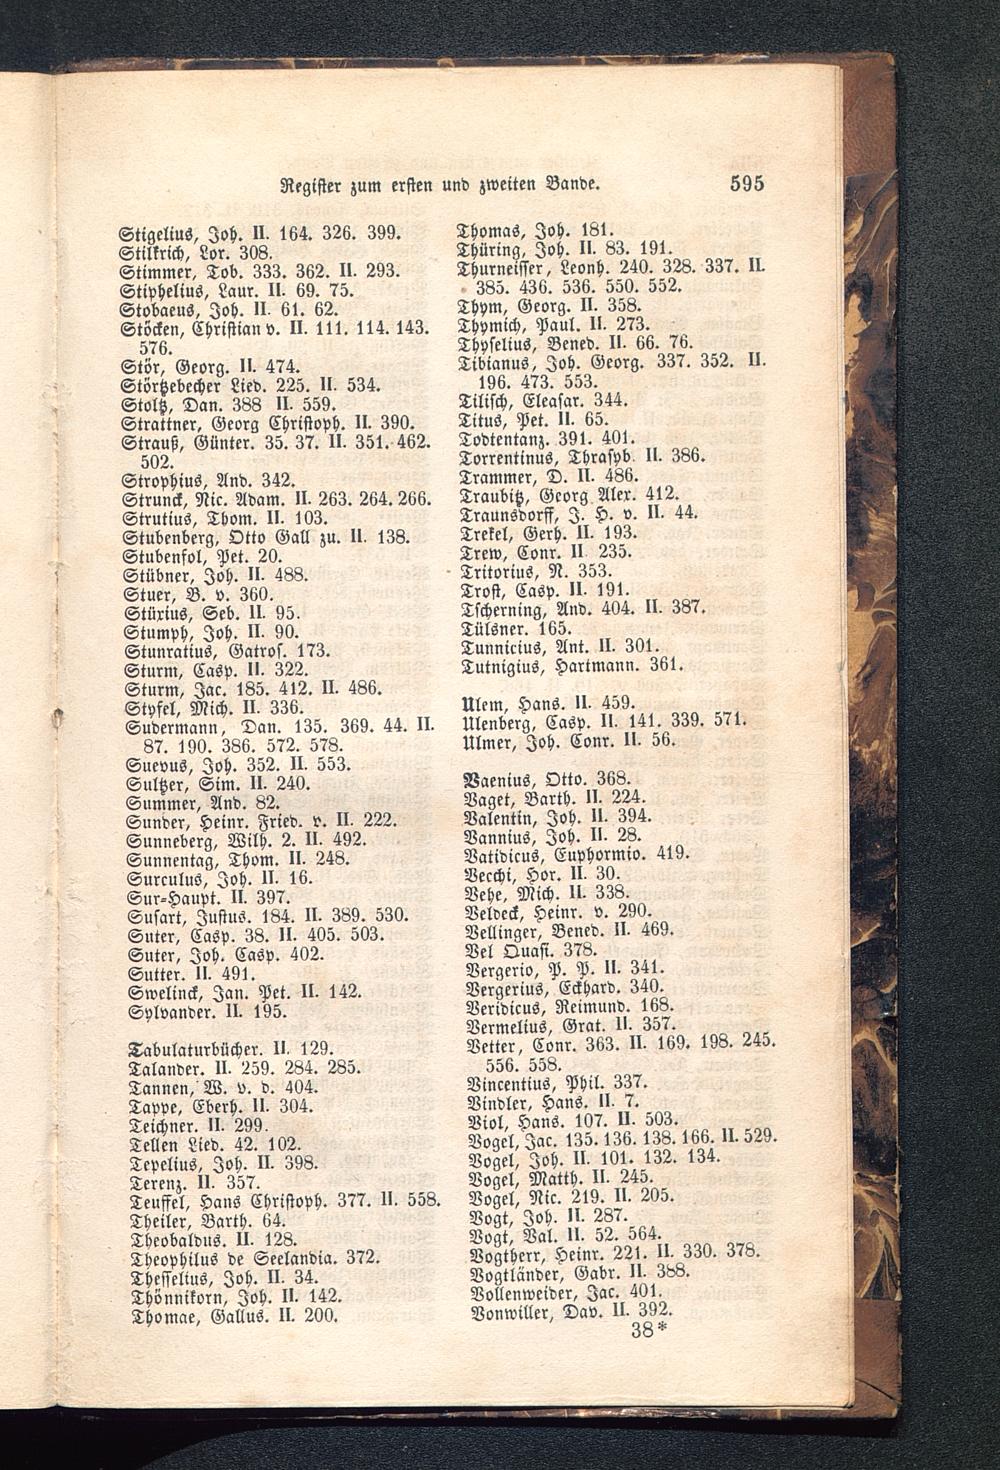 Register zum ersten und zweiten Bande. 595
Stigelius, Joh. II. 164. 326. 399.
Stilkrich, Lor. 308.
Stimmer, Tob. 333. 362. II. 293.
Stiphelius, Laur. II. 69. 75.
Stobaeus, Joh. II. 61. 62.
Stöcken, Christian v. II. 111. 114. 143.
576.
Stör, Georg. II. 474.
Störtzebecher Lied. 225. II. 534.
Stoltz, Dan. 388 II. 559.
Strattner, Georg Christoph. II. 390.
Strauß, Günter. 35. 37. II. 351. 462.
502.
Strophius, And. 342.
Strunck, Nic. Adam. II. 263. 264. 266.
Strutius, Thom. II. 103.
Stubenberg, Otto Gall zu. II. 138.
Stubenfol, Pet. 20.
Stübner, Joh. II. 488.
Stuer, B. v. 360.
Stürius, Seb. II. 95.
Stumph, Joh. II. 90.
Stunratius, Gatros. 173.
Sturm, Casp. II. 322.
Sturm, Jac. 185. 412. II. 486.
Styfel, Mich. II. 336.
Sudermann, Dan. 135. 369. 44. II.
87. 190. 386. 572. 578.
Suevus, Joh. 352. II. 553.
Sultzer, Sim. II. 240.
Summer, And. 82.
Sunder, Heinr. Fried. v. II. 222.
Sunneberg, Wilh. 2. II. 492.
Sunnentag, Thom. II. 248.
Surculus, Joh. II. 16.
Sur-Haupt. II. 397.
Susart, Justus. 184. II. 389. 530.
Suter, Casp. 38. II. 405. 503.
Suter, Joh. Casp. 402.
Sutter. II. 491.
Swelinck, Jan. Pet. II. 142.
Sylvander. II. 195.
Tabulaturbücher. II. 129.
Talander. II. 259. 284. 285.
Tannen, W. v. d. 404.
Tappe, Eberh. II. 304.
Teichner. II. 299.
Tellen Lied. 42. 102.
Tepelius, Joh. II. 398.
Terenz. II. 357.
Teuffel, Hans Christoph. 377. II. 558.
Theiler, Barth. 64.
Theobaldus. II. 128.
Theophilus de Seelandia. 372.
Thesselius, Joh. II. 34.
Thönnikorn, Joh. II. 142.
Thomae, Gallus. II. 200.
Thomas, Joh. 181.
Thüring, Joh. II. 83. 191.
Thurneisser, Leonh. 240. 328. 337. II.
385. 436. 536. 550. 552.
Thym, Georg. II. 358.
Thymich, Paul. II. 273.
Thyselius, Bened. II. 66. 76.
Tibianus, Joh. Georg. 337. 352. II.
196. 473. 553.
Tilisch, Eleasar. 344.
Titus, Pet. II. 65.
Todtentanz. 391. 401.
Torrentinus, Thrasyb. II. 386.
Trammer, D. II. 486.
Traubitz, Georg Alex. 412.
Traunsdorff, J. H. v. II. 44.
Trekel, Gerh. II. 193.
Trew, Conr. II 235.
Tritorius, N. 353.
Trost, Casp. II. 191.
Tscherning, And. 404. II. 387.
Tülsner. 165.
Tunnicius, Ant. II. 301.
Tutnigius, Hartmann. 361.
Ulem, Hans. II. 459.
Ulenberg, Casp. II. 141. 339. 571.
Ulmer, Joh. Conr. II. 56.
Vaenius, Otto. 368.
Vaget, Barth. II. 224.
Valentin, Joh. II. 394.
Vannius, Joh. II. 28.
Vatidicus, Euphormio. 419.
Vecchi, Hor. II. 30.
Vehe, Mich. II. 338.
Veldeck, Heinr. v. 290.
Vellinger, Bened. II. 469.
Vel Quasi. 378.
Vergerio, P. P. II. 341.
Vergerius, Eckhard. 340.
Veridicus, Reimund. 168.
Vermelius, Grat. II. 357.
Vetter, Conr. 363. II. 169. 198. 245.
556. 558.
Vincentius, Phil. 337.
Vindler, Hans. II. 7.
Viol, Hans. 107. II. 503.
Vogel, Jac. 135. 136. 138. 166. II. 529.
Vogel, Joh. II. 101. 132. 134.
Vogel, Matth. II. 245.
Vogel, Nic. 219. II. 205.
Vogt, Joh. II. 287.
Vogt, Val. II. 52. 564.
Vogtherr, Heinr. 221. II. 330. 378.
Vogtländer, Gabr. II. 388.
Vollenweider, Jac. 401.
Vonwiller, Dav. II. 392.
38*